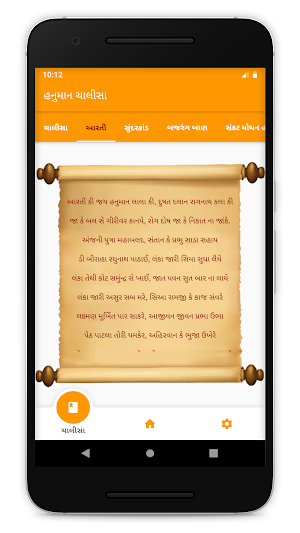 10:12
હનુમાન ચાલીસા
ચાલીસા આરતી સુંદરકાંડ બજરંગ બાણ સંકટ મોચન હ
આરતી કી જય હનુમાન લાલા કી, દુષત દલાન રાગનાથ કલા કી
જા કે બલ સે ગીરીવર કાનપે, રોગ દોષ જા કે નિકાત ના જાંકે.
અંજની પુત્રા મહાબલદા, સંતાન કે પ્રભુ સાડા સહાય
ડી બીરાહા રઘુનાથ પાઠાઈ, લંકા જારી સિયા સુધા લૈયે
લંકા તેથી કોટ સમુંન્દ્ર સે ખાઈ, જાત પવન સુત બાર ના લાયે
લંકા જારી અસુર સબ મરે, સિઆ રામજી કે કાજ સંવરે
લક્ષ્મણ મુર્ખિત પાર સાકરે, આજીવન જીવન પ્રભા ઉભા
પેઠ પાટલા તોરી યમકેર, અહિરવાન કે ભુજા ઉખેરે
ચાલીસા